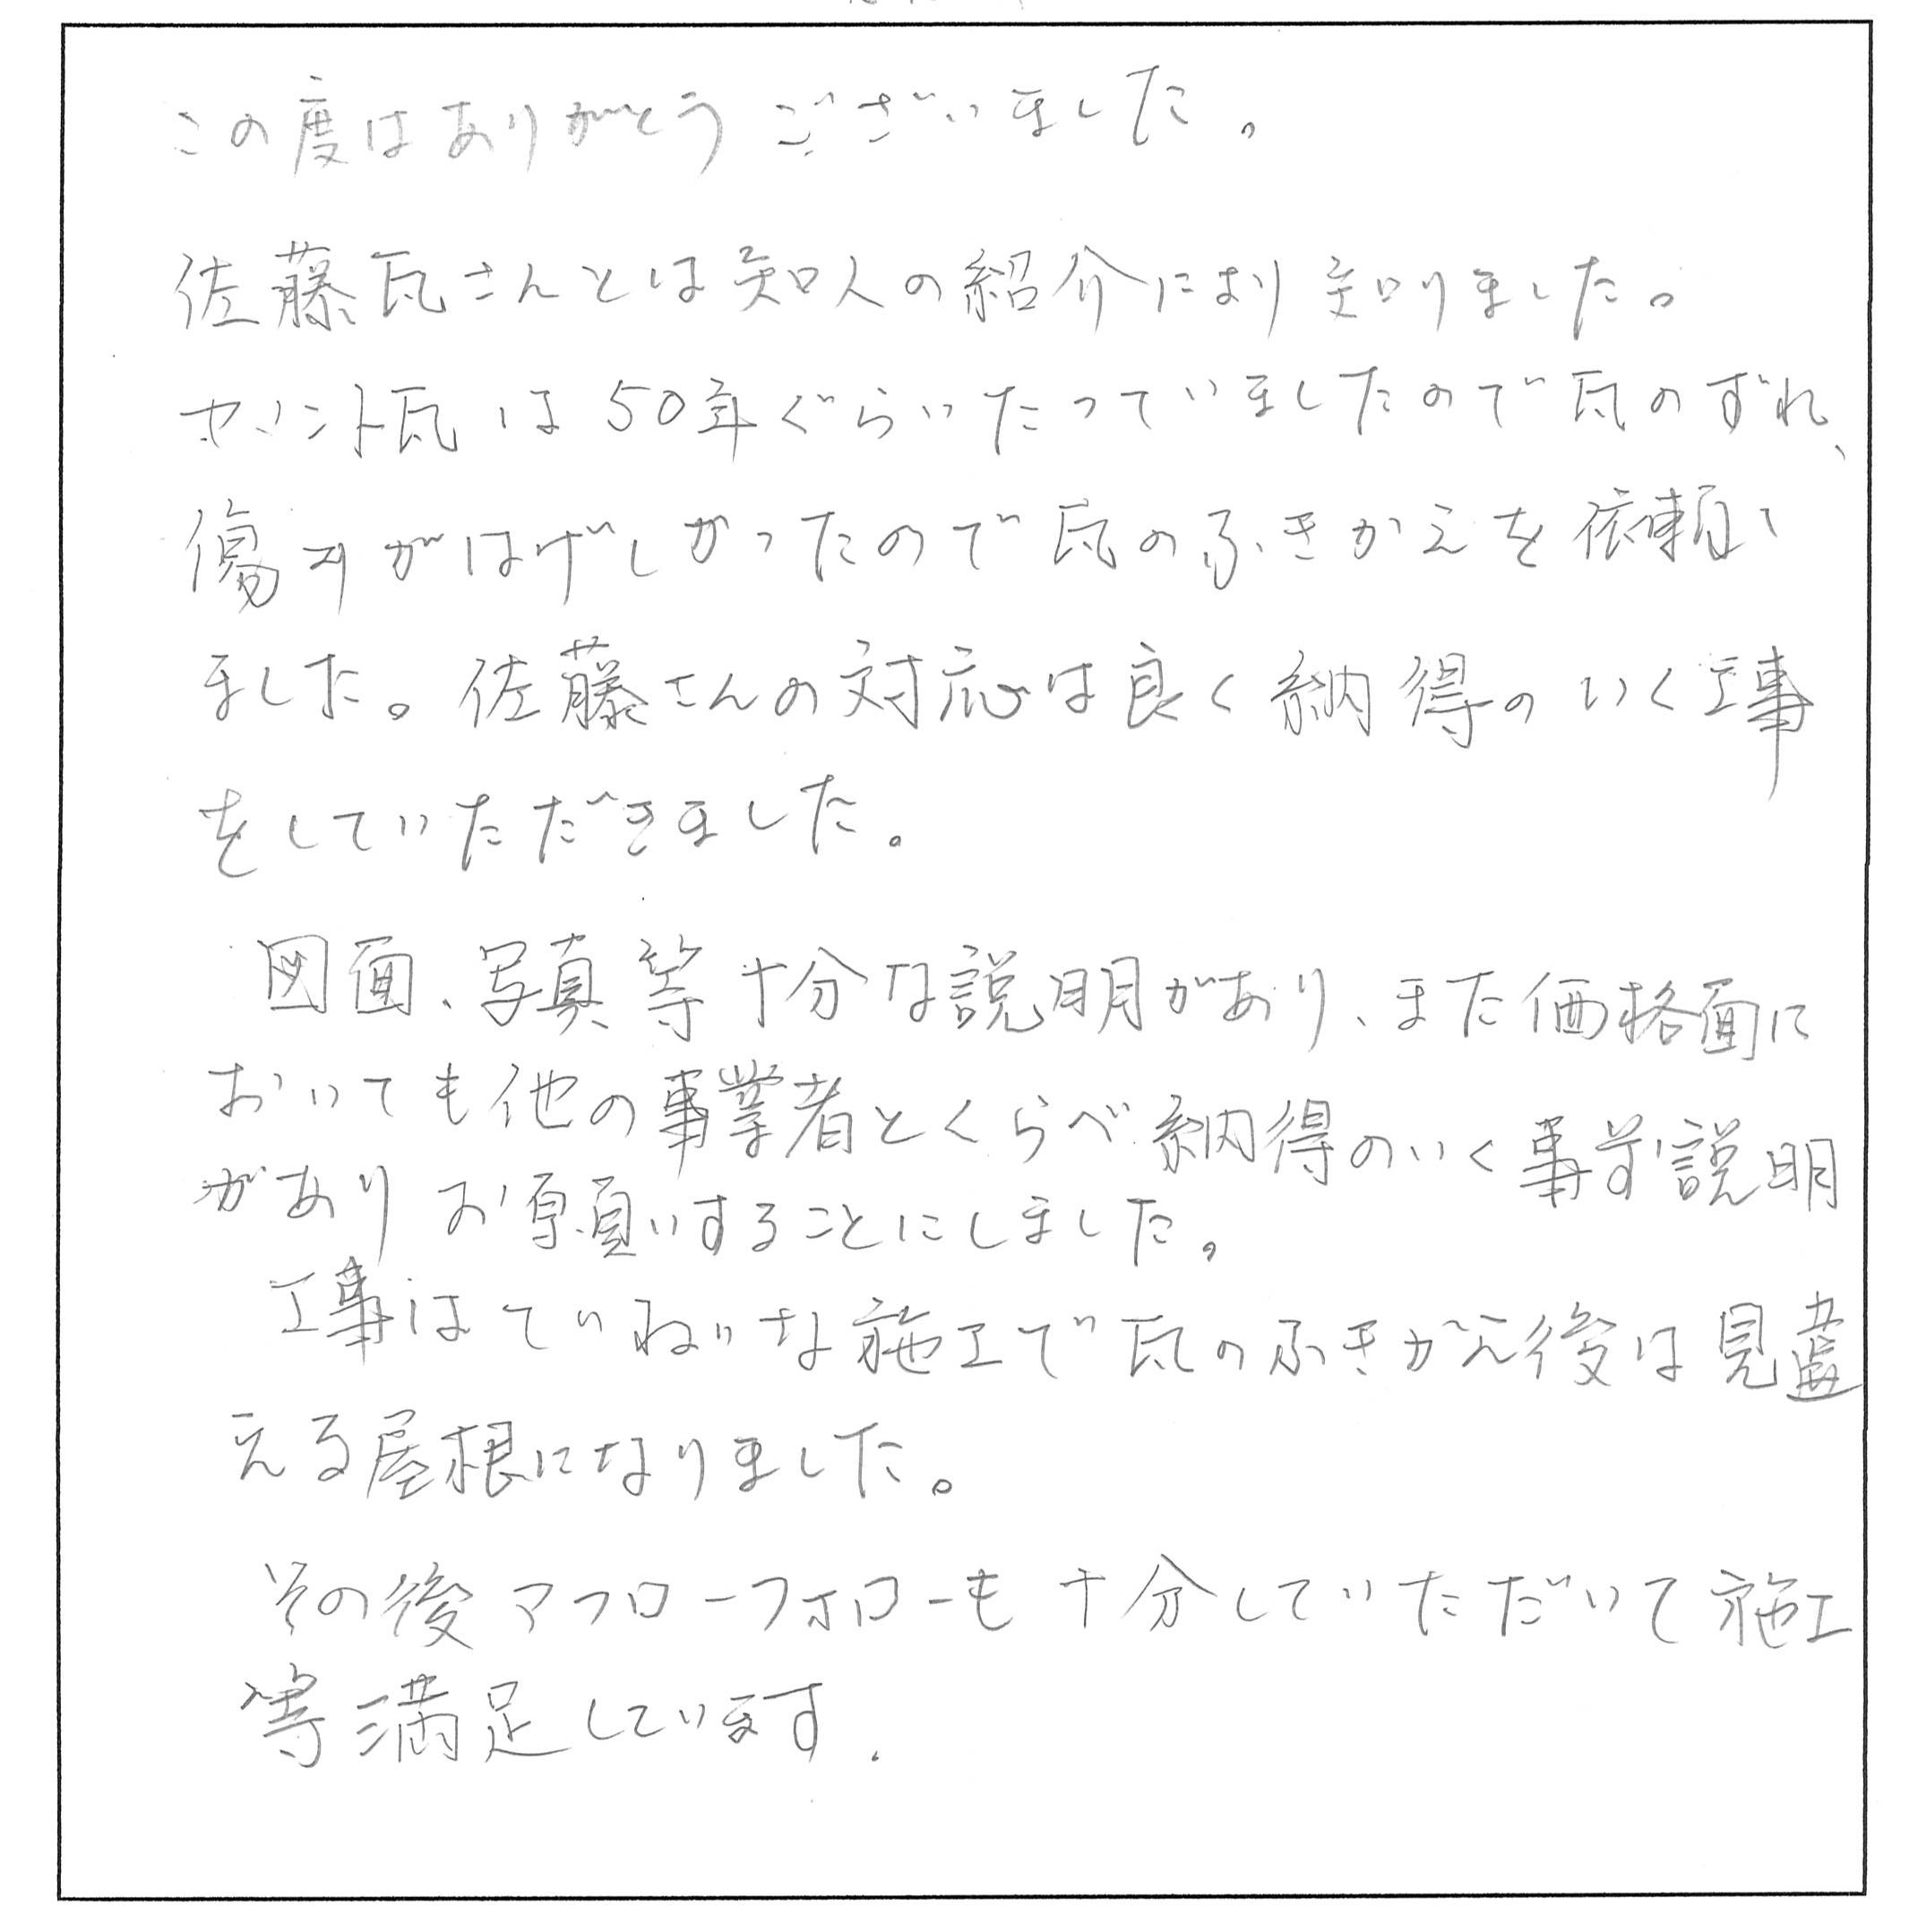 この度はありがとうございました。
佐藤瓦さんとは知人の紹介により知りました。
セメント瓦は50年ぐらいたっていましたので瓦のずれ、
傷みがはげしかったので瓦のふきかえを依頼し
ました。佐藤さんの対応は良く納得のいく工事
をしていただきました。
図面、写真等十分な説明があり、また価格面に
おいても他の事業者とくらべ納得のいく事前説明
がありお願いすることにしました。
工事はていねいな施工で瓦のふきがえ後は見違
える屋根になりました。
その後アフローフォローも十分していただいて施工
等満足しています.